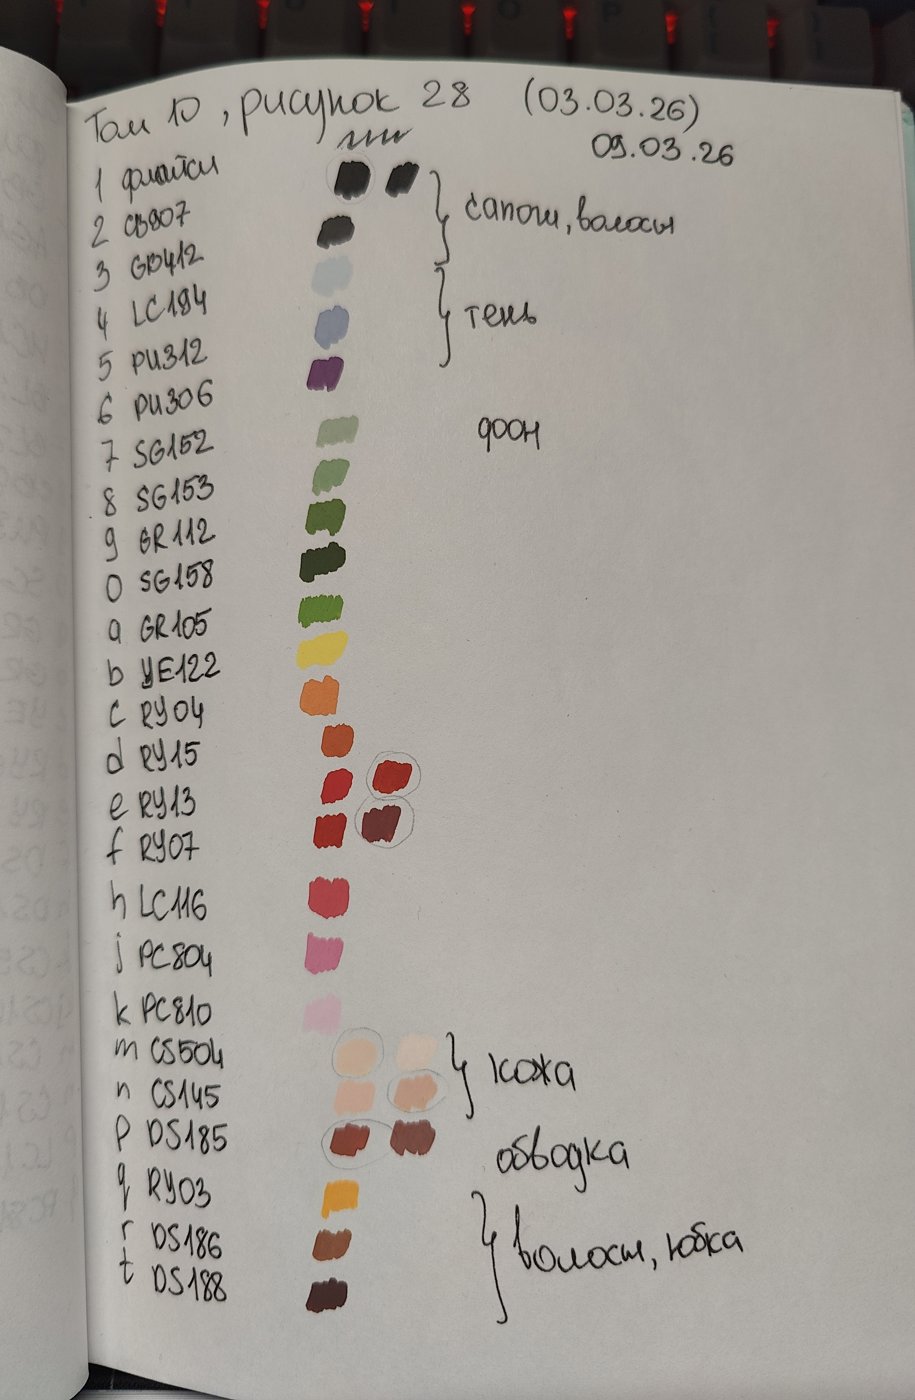 Том 10, рисунок 28 (03.03.26)
09.03.26
1
2 CB807
3 GD412
4 LC184
5 PU312
6 PU306
7 SG152
8 SG153
9 GR112
0 SG158
a GR105
b YE122
c RY04
d RY15
e RY13
f RY07
h LC116
j PC804
k PC810
m CS504
n CS145
p DS185
q RY03
r DS186
t DS188
сапоги, волосы
тень
фон
кожа
обводка
волосы, юбка